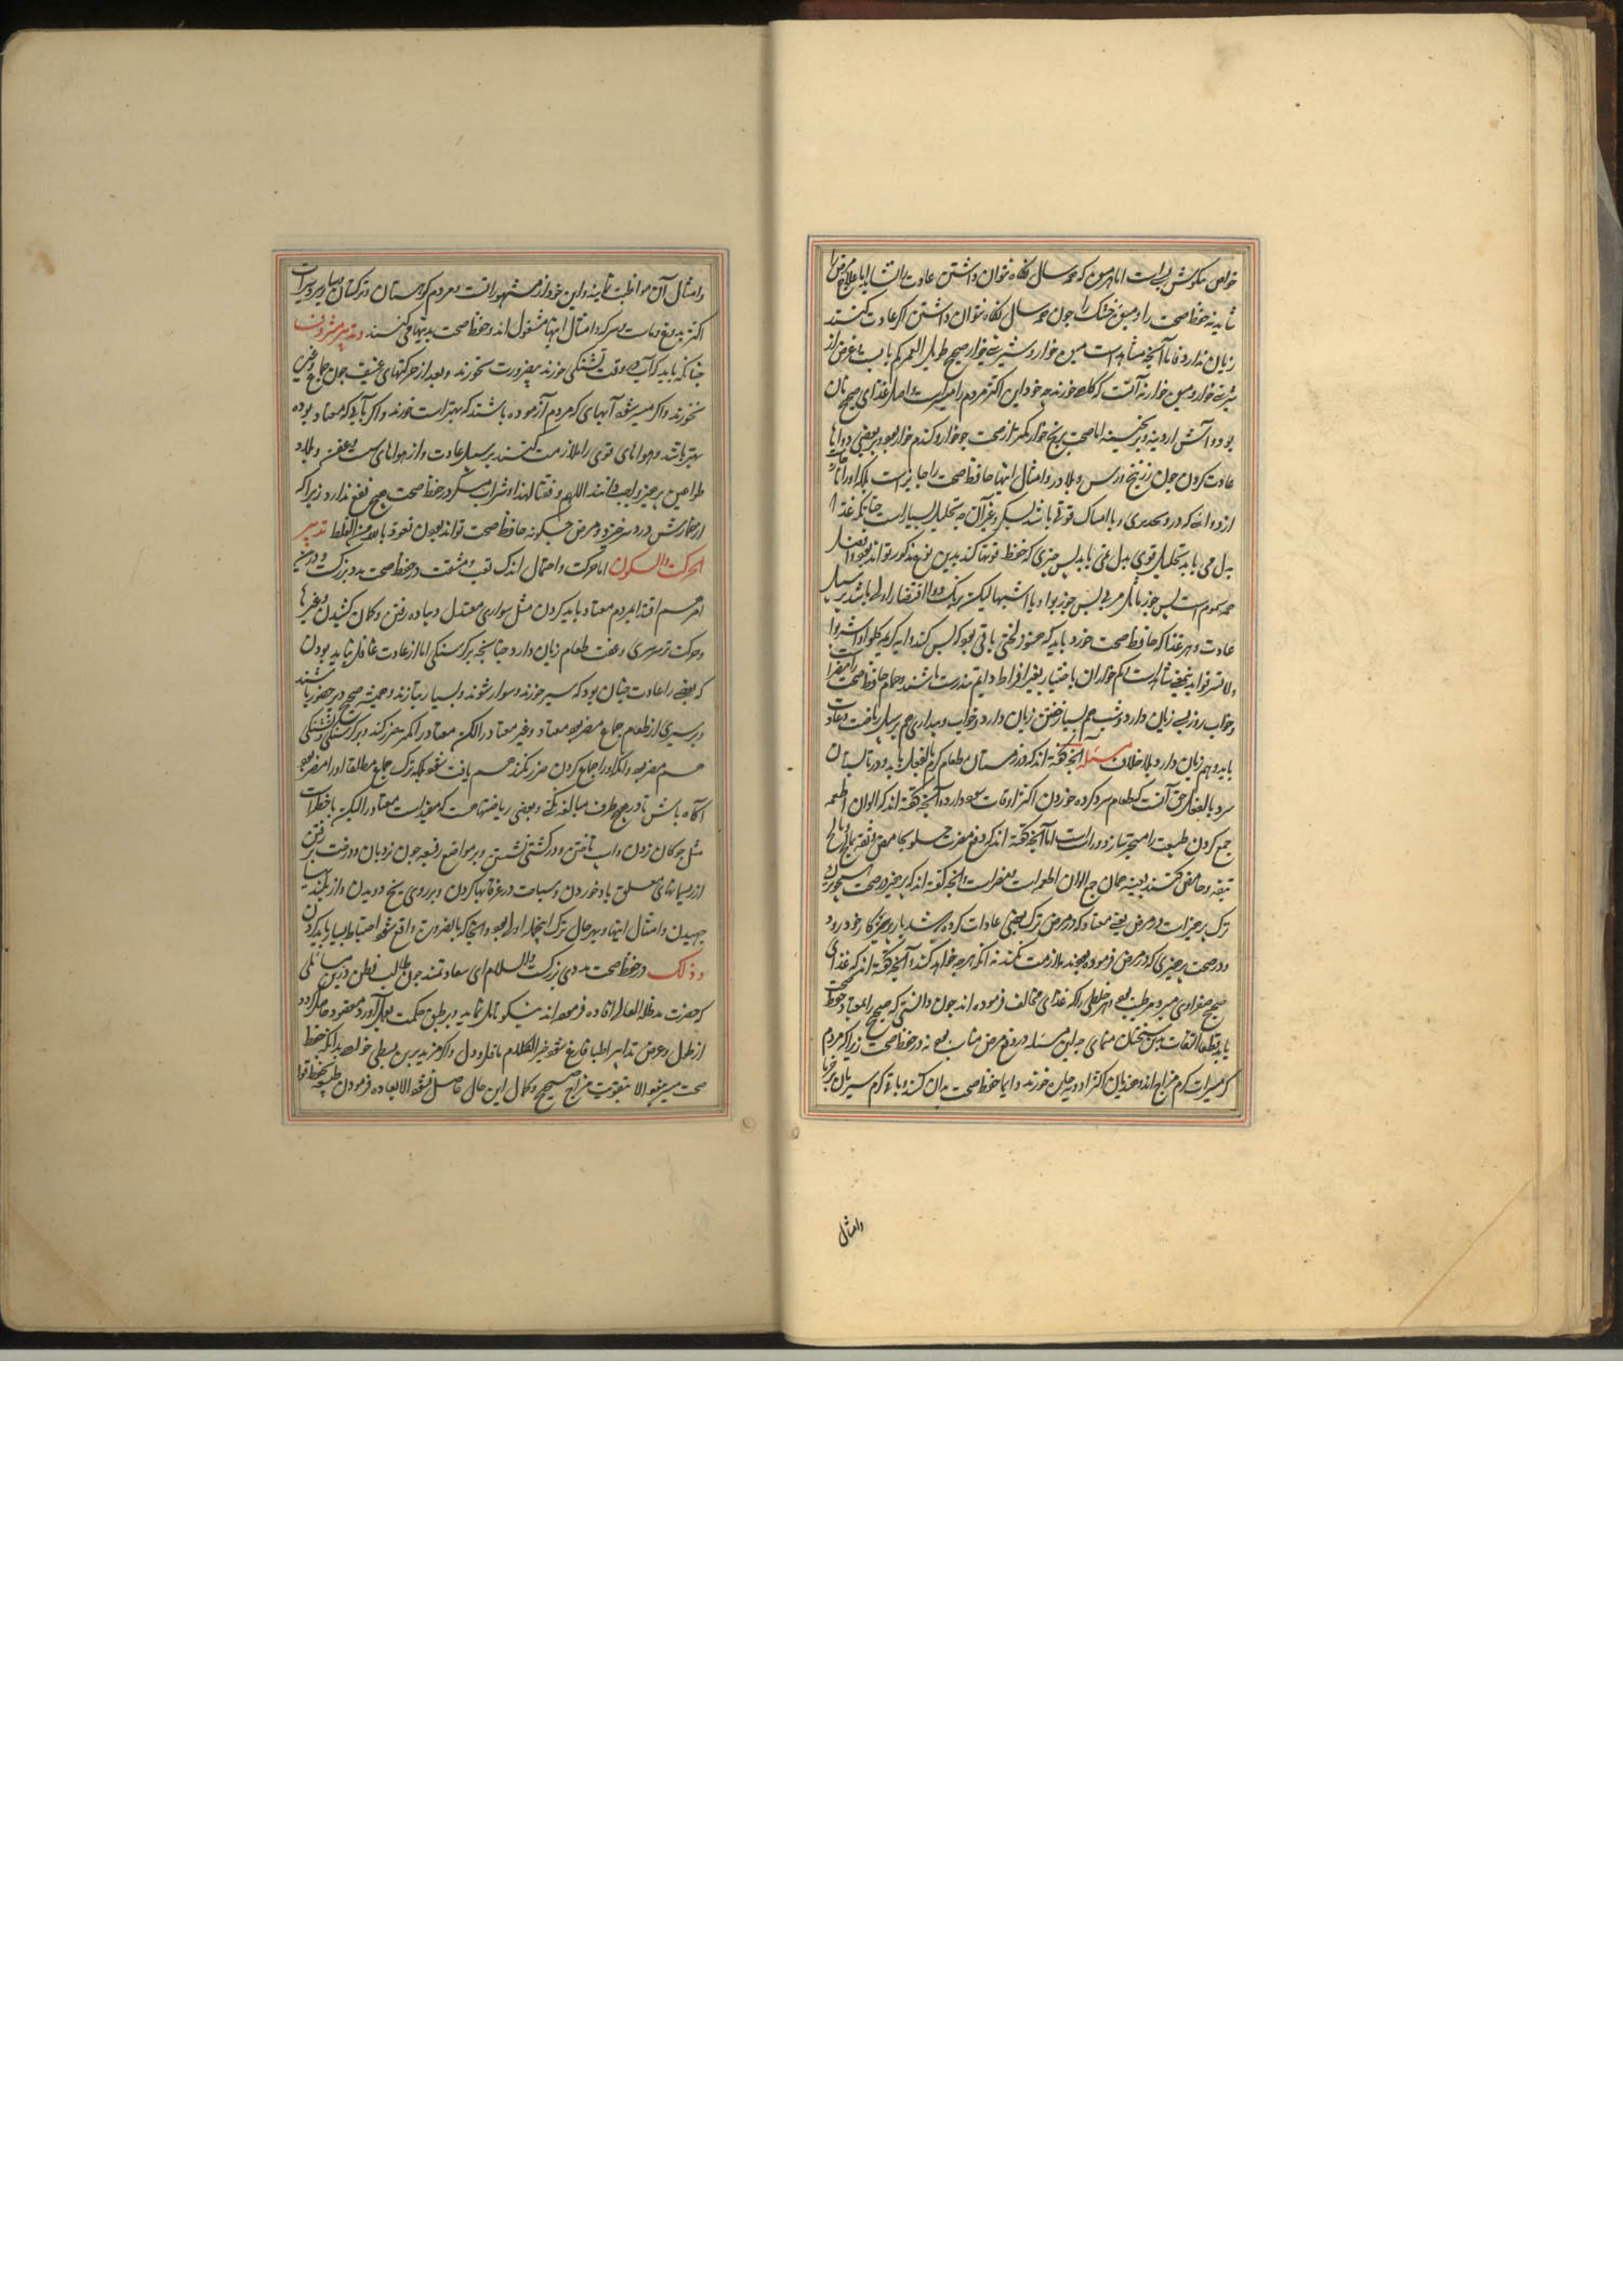 خواص نیکوش بسیار است اما هرمیوه که همه سال نگاه نتوان داشتن عادت را نشاید اما علاج مرض را
شاید نه حفظ صحت را و میوهٔ خشک را چون همه سال نگاه نتوان داشتن اگر عادت کنند
زیان ندارد فاما آنچه مشاهد است میوه خوار و شیرینی خوار صحیح طویل العمر کم یابست غرض از
شیرینی خوار و میوه خوار نه آنست که گاه خورند چه خود این اکثر مردم را میسر است اصل غذای صحیح نان
بود و آش آردینه و برنجینه اما صحت برنج خوار کمتر از صحت جو خوار و گندم خوار بود و ببعضی دواها
عادت کردن چون زرنیخ و ورس و بلادر و امثال اینها حافظ صحت را جایز است بلکه او را
از دوائی که در وی تخدیری و یا امساک قوتی باشد لیکن وغیر آن چه تحلیل بسیار است چنانکه غذا
بدل می باید تحلیل قوی بدل می باید پس چیزی که حفظ قوتها کند بدین نوع مذکور تواند بود و افضل
همه سموم است پس جوز ماثل مربی پس جوز بوا و یا اشبهها لیکن بیک دوا اقتصار اولی باشد بر سبیل
عادت و هر غذا که حافظ صحت خورد باید که هنوز لختی باقی بود که بس کند و آیه کریمه کلوا و اشربوا
ولا تسرفوا بدین معنی شاهد است و کم خواران باختیار بغیر افراط دایم تندرست باشند و حمام حافظ صحت را مضر است
و خواب روز بسی زیان دارد و شب هم بسیار خفتن زیان دارد و خواب و بیداری هم بر سبیل ریاضت و عادت
باید و هم زیان دارد بلا خلاف مسئله آنچه گفته اند که در زمستان طعام گرم بالفعل باید و در تابستان
سرد بالفعل حق آنست که طعام سرد کرده خوردن اکثر اوقات سود دارد و آنچه گفته اند که الوان اطعمه
جمع کردن طبیعت را متحیر سازد و رد است اما آنچه گفته اند که دفع مضرت حلو بحامض و تفه بمالح و مالح
بتفه و حامض کنند بعینه همان جمع الوان اطعمه است بعضر است و آنچه گفته اند که پرهیز در صحت همچون
ترک پرهیز است در مرض یعنی معتاد که در مرض ترک بعضی عادات کرده باشد باز بر سر کار خود رود
و در صحت پرهیزی که در مرض فرموده بودند ملازمت نکند نه آنکه هر چه خواهد کند و آنچه گفته اند که غذای
صحیح صفراوی سرد و مرطب بود و هر خلطی را که غذای مخالف فرموده اند چون دانستی که صحیح را بمعتاد حفظ صحت
باید قطعا التفات بدین سخنان منمای چه این مسئله در دفع مرض مناسب بود نه در حفظ صحت زیرا که مردم
گرمسیرات گرم مزاج اند و هندیان اکثر ادویه حاره خورند و دایما حفظ صحت بدان کنند و باغذیه گرم سیریان برخرما
وامثال
وامثال آن مواظبت نمایند و این خود از مشهوراتست و مردم کوهستان و ترکستان و سایر سردسیرات
اکثر بدوغ و ماست و سرکه و امثال اینها مشغول اند و حفظ صحت بدینها می کنند و تدبیر مشروب
چنانکه باید که آب در وقت تشنگی خورند و بی ضرورت نخورند و بعد از حرکتهای عنیف چون جماع وغیره
نخورند و اگر میسر شود آبهای که مردم آزموده باشند که بهتر است خورند و اگر بآبی که معتاد بوده
بهتر باشد و هواهای قوی را ملازمت کنند بر سبیل عادت و از هواهای سست و عفن و بلاد
طواعین پرهیز واجب دانند اللهم وفقنا لهذا و شراب مسکر در حفظ صحت هیچ نفع ندارد زیرا که
از خمارش درد سر خیزد و مرض چگونه حافظ صحت تواند بودن نعوذ بالله من الغلط تدبیر
الحرکت والسکون اما حرکت و احتمال اندک تعب و مشقت در حفظ صحت مددی بزرگست و درین
امر هم اقتدا بمردم معتاد باید کردن مثل سواری معتدل و پیاده رفتن و کمان کشیدن و غیرها
و حرکت بر سر سیری و عقب طعام زیان دارد چنانچه بر گرسنگی اما از عادت غافل نشاید بودن
که بعضی را عادت چنان بود که سیر خورند و سوار شوند و بسیار بتازند و همیشه صحیح و برحضور باشند
و بر سیری از طعام جماع مضر بود معتاد و غیر معتاد را لکن معتاد را کمتر ضرر کند و بر گرسنگی و تشنگی
هم مضر بود و آنکه او را جماع کردن ضرر نکند هم یافت نشود بلکه ترک جماع مطلقا او را مضر بود
آگاه باش تا در هیچ طرف مبالغه نکنی و بعضی ریاضتها هست که مفید است معتاد را لیکن با خطر است
مثل چوگان زدن و اسب تاختن و در کشتی نشستن و بر مواضع رفیعه چون نردبان و درخت بر رفتن
و از ریسمانهای معلق باد خوردن و سباحت در غرقابها کردن و بر روی یخ دویدن و از بلندیها
جهیدن و امثال اینها و بهر حال ترک اینها اولی بود و آنجا که بالضرورت واقع شود احتیاط بسیار باید کردن
و ذلک در حفظ صحت مددی بزرگست والسلام ای سعادتمند چون طالب فطن درین مسائلی
که حضرت مد ظله العالی افاده فرموده اند نیکو تامل نماید و بر طبق حکمت بعمل آورد و مقصود حاصل کردد
از طول و عرض تدابیر اطبا فارغ شود خیر الکلام ما قل و دل و اگر مزید برین بسطی خواهد بدانکه حفظ
صحت میسر نشود الا بتقویت مزاج صحیح و کمال این حال حاصل نشود الا باعاده فرمودن طبیعت بحفظ قوا